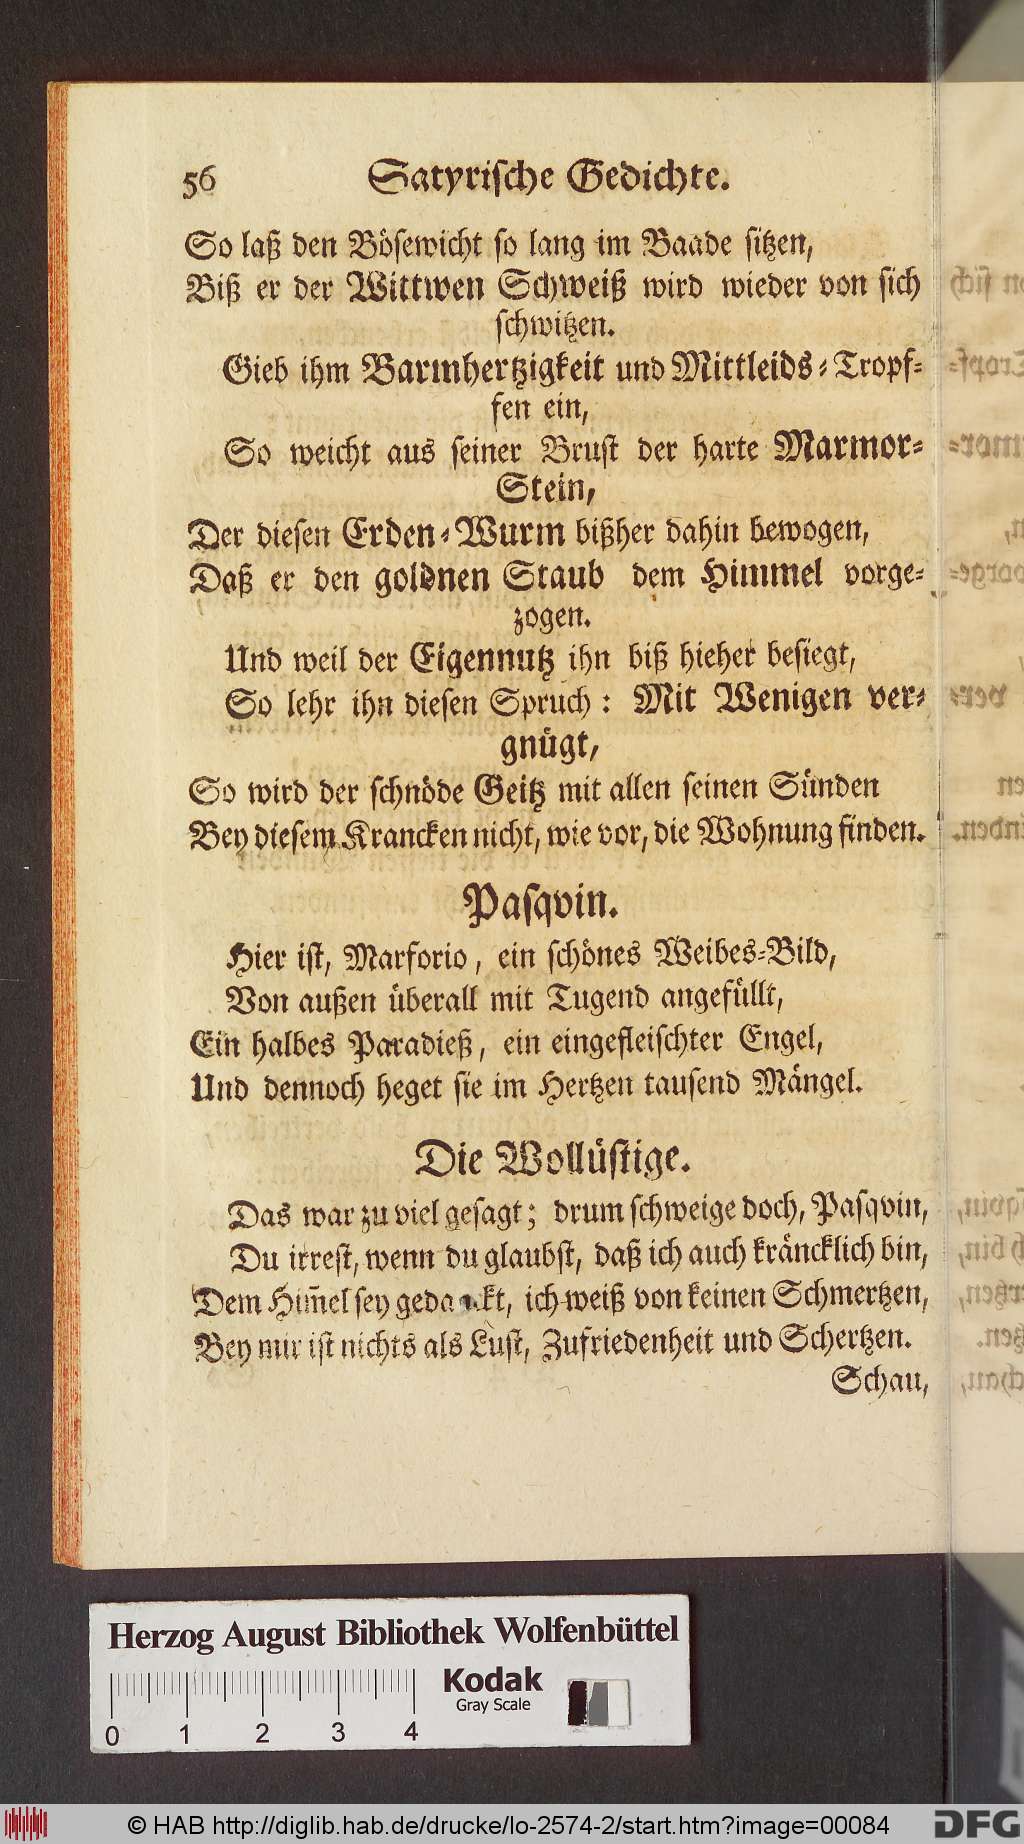 56 Satyrische Gedichte.
So laß den Bösewicht so lang im Baade sitzen,
Biß er der Wittwen Schweiß wird wieder von sich
schwitzen.
Gieb ihm Barmhertzigkeit und Mittleids-Tropf-
fen ein,
So weicht aus seiner Brust der harte Marmor-
Stein,
Der diesen Erden-Wurm bißher dahin bewogen,
Daß er den goldnen Staub dem Himmel vorge-
zogen.
Und weil der Eigennutz ihn biß hieher besiegt,
So lehr ihn diesen Spruch: Mit Wenigen ver-
gnügt,
So wird der schnöde Geitz mit allen seinen Sünden
Bey diesem Krancken nicht, wie vor, die Wohnung finden.
Pasqvin.
Hier ist, Marforio, ein schönes Weibes-Bild,
Von außen überall mit Tugend angefüllt,
Ein halbes Paradieß, ein eingefleischter Engel,
Und dennoch heget sie im Hertzen tausend Mängel.
Die Wollüstige.
Das war zu viel gesagt; drum schweige doch, Pasqvin,
Du irrest, wenn du glaubst, daß ich auch kräncklich bin,
Dem Him̅el sey gedanckt, ich weiß von keinen Schmertzen,
Bey mir ist nichts als Lust, Zufriedenheit und Schertzen.
Schau,
Herzog August Bibliothek Wolfenbüttel
Kodak
Gray Scale
0 1 2 3 4
© HAB http://diglib.hab.de/drucke/lo-2574-2/start.htm?image=00084
DFG